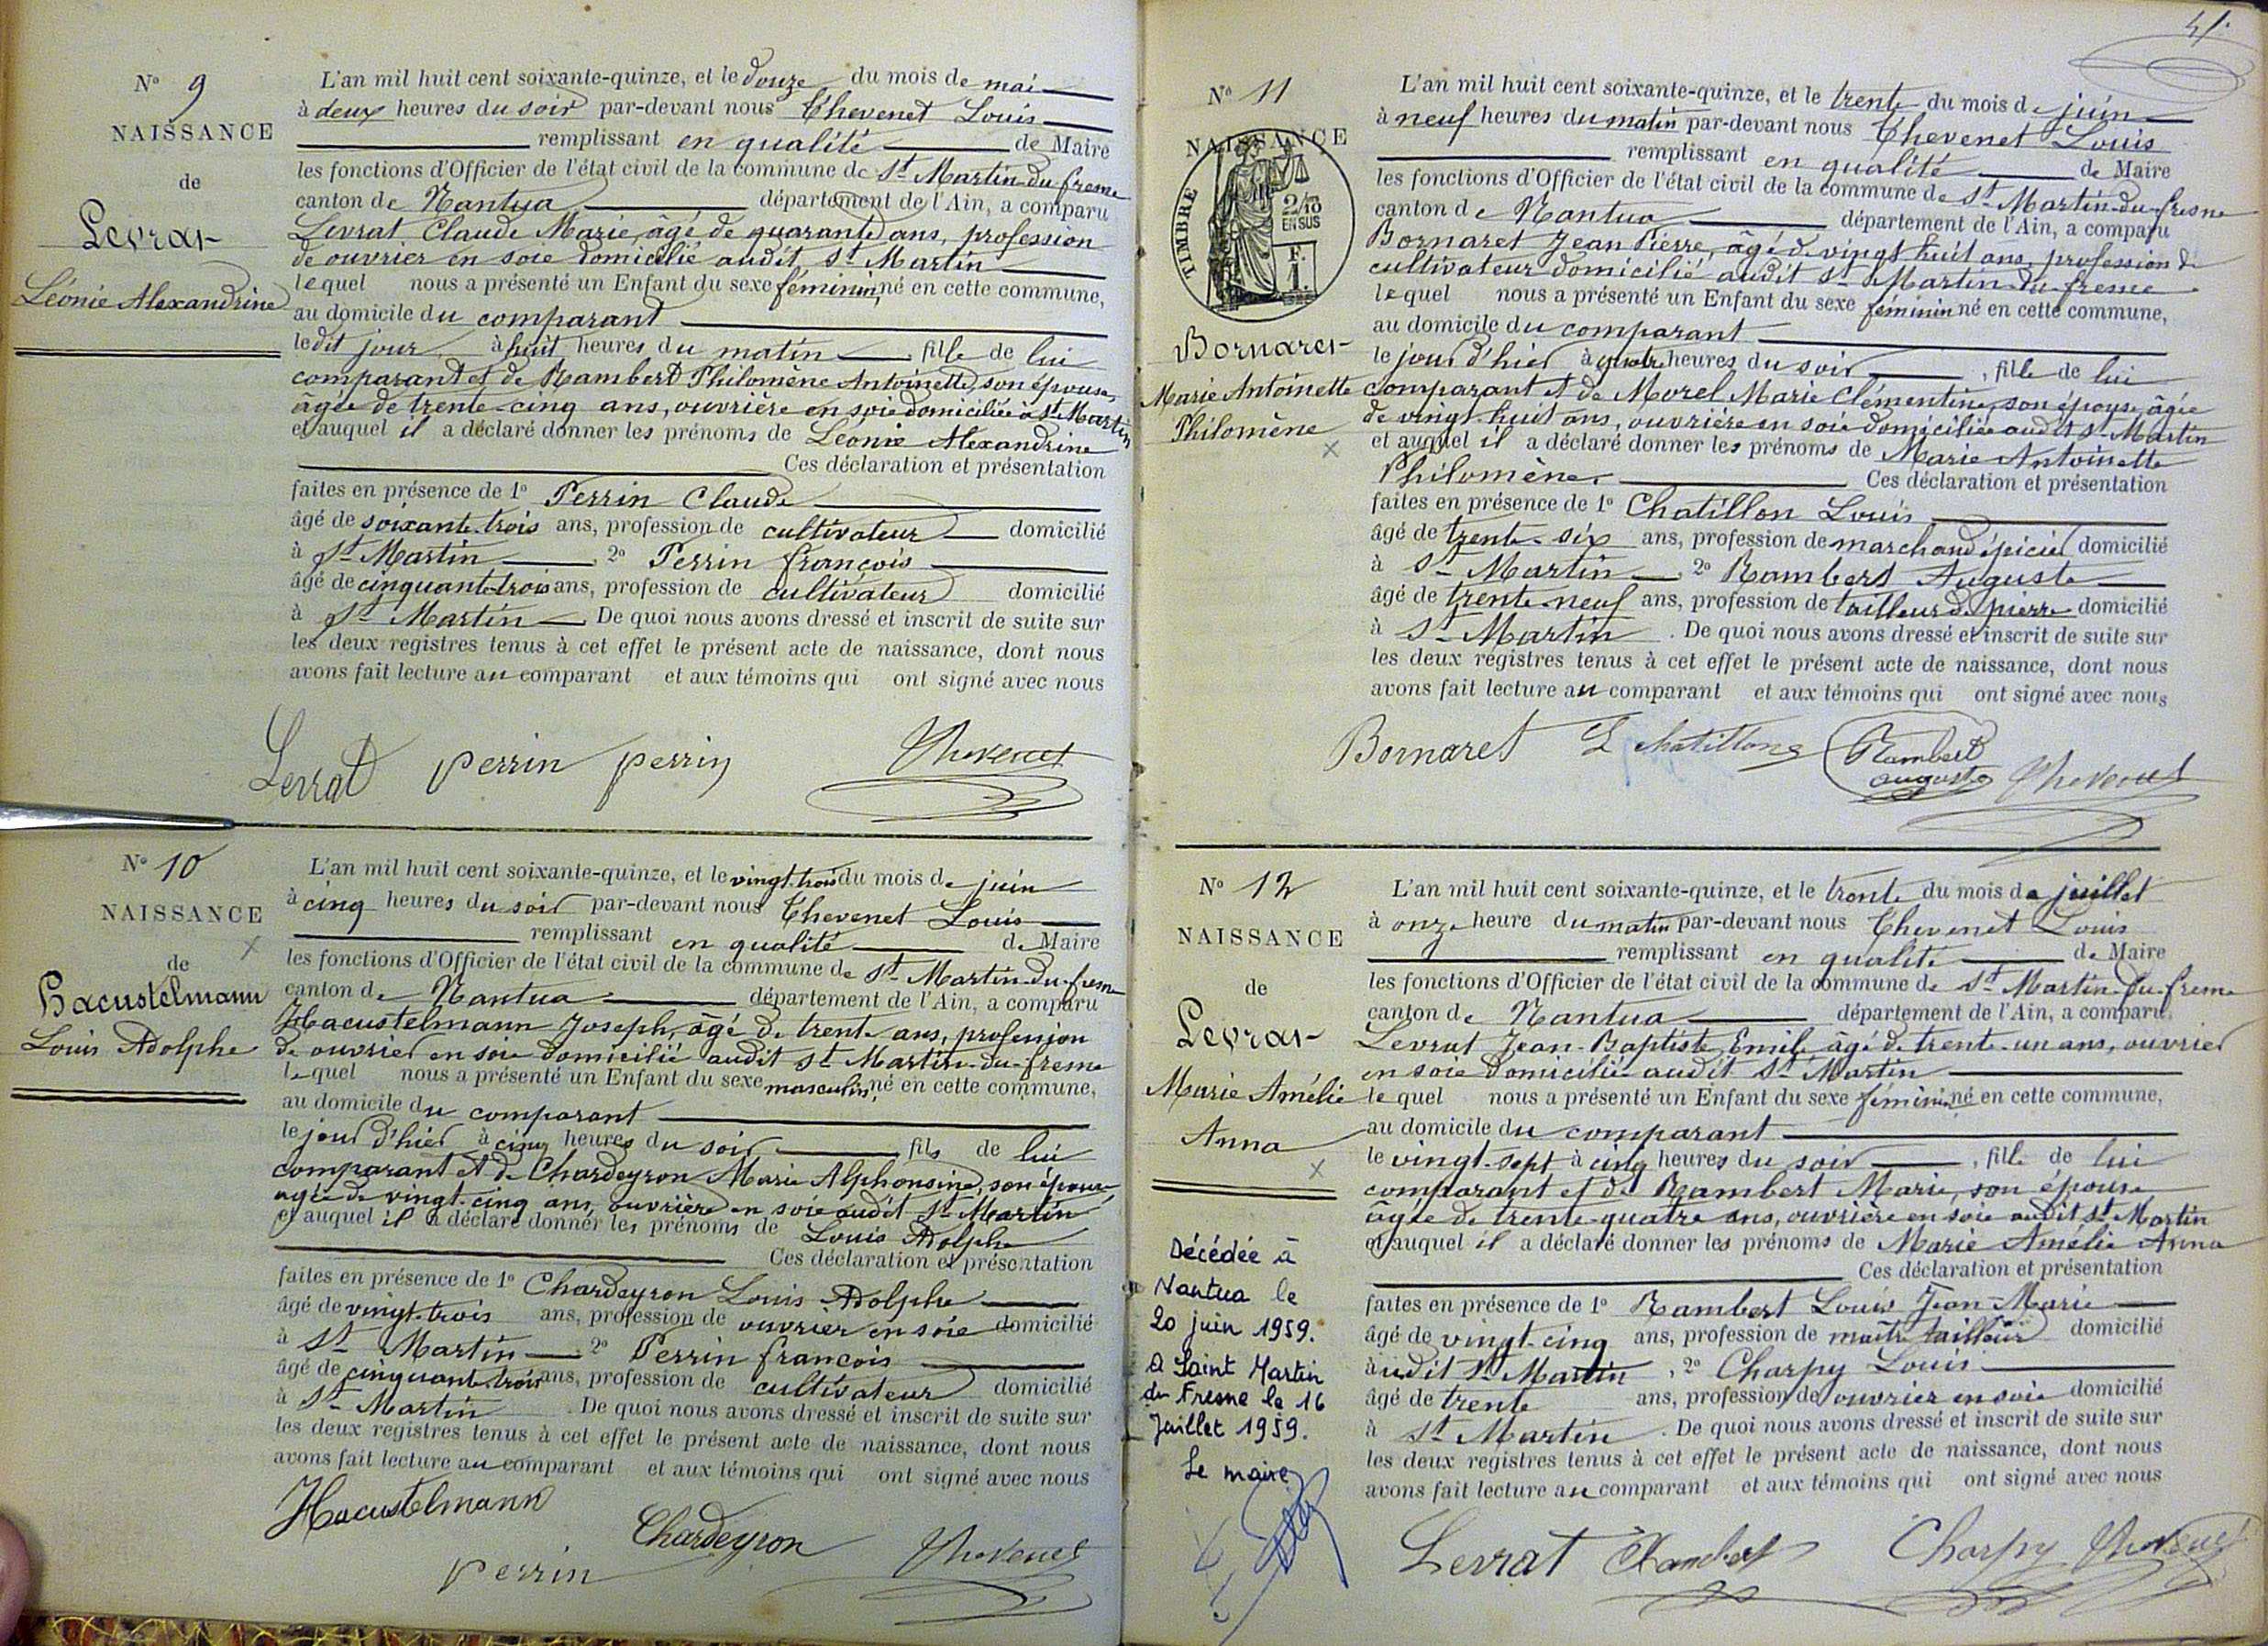 Nº 9
NAISSANCE
de
Levrat
Léonie Alexandrine
L'an mil huit cent soixante-quinze, et le douze du mois de mai
à deux heures du soir par-devant nous Chevenet Louis
remplissant en qualité de Maire
les fonctions d'Officier de l'état civil de la commune de St Martin-du-fresne
canton de Nantua département de l'Ain, a comparu
Levrat Claude Marie, âgé de quarante ans, profession
de ouvrier en soie domicilié audit St Martin
lequel nous a présenté un Enfant du sexe féminin, né en cette commune,
au domicile du comparant
ledit jour à huit heures du matin, fille de lui
comparant et de Rambert Philomène Antoinette, son épouse,
âgée de trente-cinq ans, ouvrière en soie domiciliée à St Martin
et auquel il a déclaré donner les prénoms de Léonie Alexandrine
Ces déclaration et présentation
faites en présence de 1º Perrin Claude
âgé de soixante-trois ans, profession de cultivateur domicilié
à St Martin 2º Perrin françois
âgé de cinquante-trois ans, profession de cultivateur domicilié
à St Martin De quoi nous avons dressé et inscrit de suite sur
les deux registres tenus à cet effet le présent acte de naissance, dont nous
avons fait lecture au comparant et aux témoins qui ont signé avec nous
Levrat perrin perrin Chevenet
Nº 10
NAISSANCE
de
Hacustelmann
Louis Adolphe
L'an mil huit cent soixante-quinze, et le vingt-trois du mois de juin
à cinq heures du soir par-devant nous Chevenet Louis
remplissant en qualité de Maire
les fonctions d'Officier de l'état civil de la commune de St Martin-du-fresne
canton de Nantua département de l'Ain, a comparu
Hacustelmann Joseph, âgé de trente ans, profession
de ouvrier en soie domicilié audit St Martin-du-fresne
lequel nous a présenté un Enfant du sexe masculin, né en cette commune,
au domicile du comparant
le jour d'hier à cinq heures du soir, fils de lui
comparant et de Chardeyron Marie Alphonsine, son épouse,
âgée de vingt-cinq ans, ouvrière en soie audit St Martin
et auquel il a déclaré donner les prénoms de Louis Adolphe
Ces déclaration et présentation
faites en présence de 1º Chardeyron Louis Adolphe
âgé de vingt-trois ans, profession de ouvrier en soie domicilié
à St Martin 2º Perrin françois
âgé de cinquante-trois ans, profession de cultivateur domicilié
à St Martin De quoi nous avons dressé et inscrit de suite sur
les deux registres tenus à cet effet le présent acte de naissance, dont nous
avons fait lecture au comparant et aux témoins qui ont signé avec nous
Hacustelmann
Chardeyron Chevenet
perrin
Nº 11
NAISSANCE
TIMBRE
2/10
EN SUS
F.
1.
Bornaret
Marie Antoinette
Philomène
L'an mil huit cent soixante-quinze, et le trente du mois de juin
à neuf heures du matin par-devant nous Chevenet Louis
remplissant en qualité de Maire
les fonctions d'Officier de l'état civil de la commune de St Martin-du-fresne
canton de Nantua département de l'Ain, a comparu
Bornaret Jean Pierre, âgé de vingt huit ans, profession de
cultivateur domicilié audit St Martin-du-fresne
lequel nous a présenté un Enfant du sexe féminin né en cette commune,
au domicile du comparant
le jour d'hier à quatre heures du soir, fille de lui
comparant et de Morel Marie Clémentine, son épouse, âgée
de vingt-huit ans, ouvrière en soie domiciliée audit St Martin
et auquel il a déclaré donner les prénoms de Marie Antoinette
Philomène. Ces déclaration et présentation
faites en présence de 1º Chatillon Louis
âgé de trente-six ans, profession de marchand épicier domicilié
à St Martin, 2º Rambert Auguste
âgé de trente-neuf ans, profession de tailleur de pierre domicilié
à St Martin. De quoi nous avons dressé et inscrit de suite sur
les deux registres tenus à cet effet le présent acte de naissance, dont nous
avons fait lecture au comparant et aux témoins qui ont signé avec nous
Bornaret L Chatillon Rambert auguste Chevenet
Nº 12
NAISSANCE
de
Levrat
Marie Amélie
Anna
Décédée à
Nantua le
20 juin 1959.
A Saint Martin
du Fresne le 16
Juillet 1959.
Le maire
L'an mil huit cent soixante-quinze, et le trente du mois de juillet
à onze heure du matin par-devant nous Chevenet Louis
remplissant en qualité de Maire
les fonctions d'Officier de l'état civil de la commune de St Martin-du-fresne
canton de Nantua département de l'Ain, a comparu
Levrat Jean-Baptiste Emile âgé de trente-un ans, ouvrier
en soie domicilié audit St Martin
lequel nous a présenté un Enfant du sexe féminin né en cette commune,
au domicile du comparant
le vingt-sept à cinq heures du soir, fille de lui
comparant et de Rambert Marie, son épouse
âgée de trente-quatre ans, ouvrière en soie audit St Martin
et auquel il a déclaré donner les prénoms de Marie Amélie Anna
Ces déclaration et présentation
faites en présence de 1º Rambert Louis Jean-Marie
âgé de vingt-cinq ans, profession de maître tailleur domicilié
audit St Martin, 2º Charpy Louis
âgé de trente ans, profession de ouvrier en soie domicilié
à St Martin. De quoi nous avons dressé et inscrit de suite sur
les deux registres tenus à cet effet le présent acte de naissance, dont nous
avons fait lecture au comparant et aux témoins qui ont signé avec nous
Levrat Rambert Charpy Chevenet